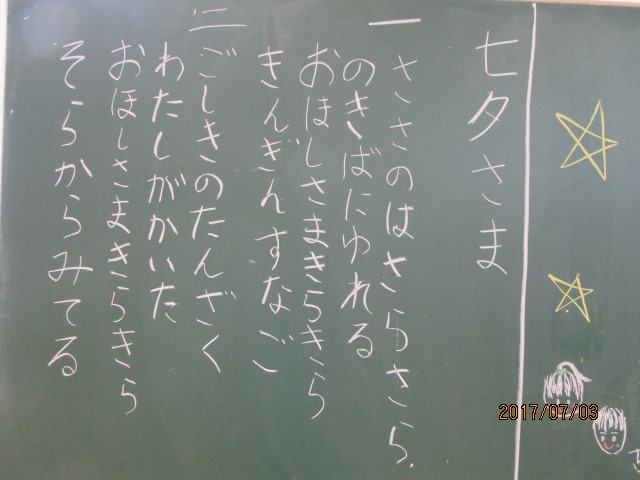 七夕さま
一
ささのはさらさら
のきばにゆれる
おほしさまきらきら
きんぎんすなご
二
ごしきのたんざく
わたしがかいた
おほしさまきらきら
そらからみてる
2017/07/03